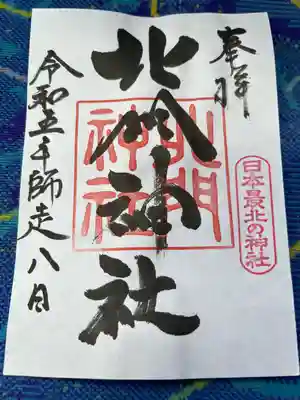 奉拝
日本最北の神社
北門神社
北門神社
令和五年師走八日